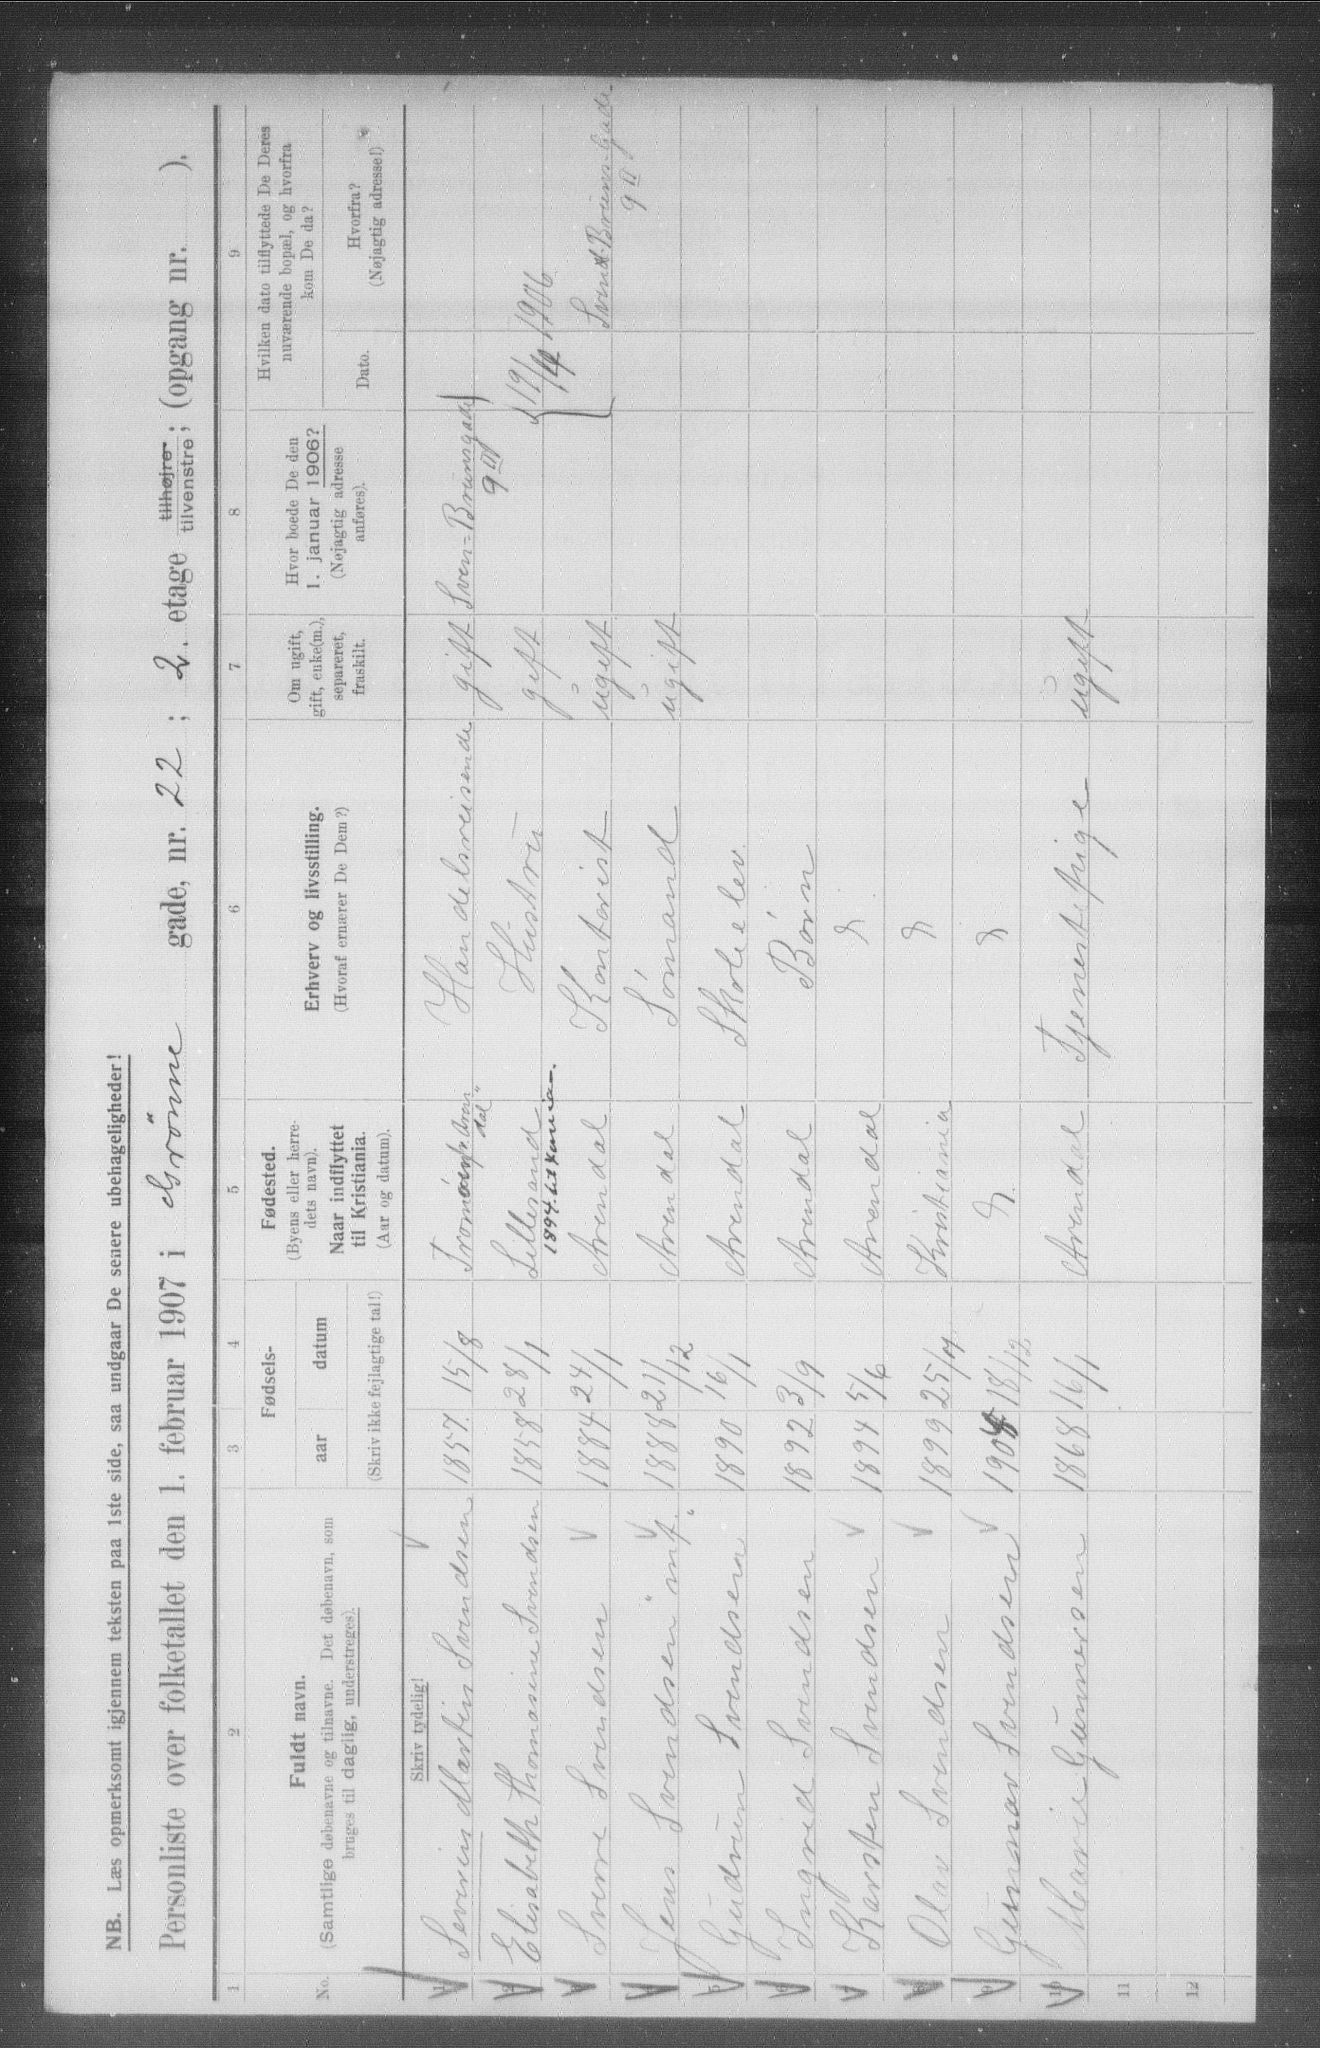 NB. Læs opmerksomt igjennem teksten paa 1ste side, saa undgaar De senere ubehageligheder!
Personliste over folketallet den 1. februar 1907 i Grönne gade, nr. 22 ; 2. etage tilhøjre tilvenstre; (opgang nr. ).
1 2 3 4 5 6 7 8 9
No.
Fuldt navn.
(Samtlige døbenavne og tilnavne. Det døbenavn, som
bruges til daglig, understreges).
Fødsels-
aar datum
(Skriv ikke fejlagtige tal!)
Fødested.
(Byens eller herre-
dets navn).
Naar indflyttet
til Kristiania.
(Aar og datum).
Erhverv og livsstilling.
(Hvoraf ernærer De Dem?)
Om ugift,
gift, enke(m.),
separeret,
fraskilt.
Hvor boede De den
1. januar 1906?
(Nøjagtig adresse
anføres).
Hvilken dato tilflyttede De Deres
nuværende bopæl, og hvorfra
kom De da?
Dato.
Hvorfra?
(Nøjagtig adresse!)
Skriv tydelig!
1 Severin Martin Svendsen 1857 15/8 Handelsreisende gift Sven-Brunsgade 9 III
2 Elisabeth Thomasine Svendsen 1858 28/1 Lillesand Hustru gift
19/4 1906
1894
3 Sverre Svendsen 1884 24/1 Arendal Kontorist ugift
9 III
4 Jens Svendsen "mf." 1888 21/12 Arendal Sömand ugift
5 Gudrun Svendsen 1890 16/1 Arendal Skoleelev
6 Ingrid Svendsen 1892 3/9 Arendal Börn
7 Karsten Svendsen 1894 5/6 Arendal
8 Olav Svendsen 1899 Kristiania
9 Gunnar Svendsen 18/12
10 Marie Gunnersen 1868 16/1 Arendal Tjenestepige ugift
11
12